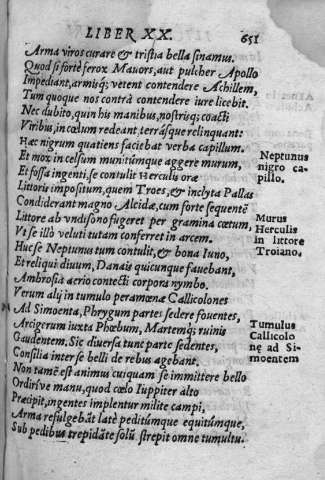 LIBER XX.
651
Arma viros curare & tristia bella sinamus.
Quod si fortè ferox Mavors, aut pulcher Apollo
Impediant, armisq; vetent contendere Achillem,
Tum quoque nos contrà contendere iure licebit.
Nec dubito, quin his manibus, nostrisq; coacti
Viribus, in cœlum redeant, terrasque relinquant:
Hæc nigrum quatiens faciebat verba capillum.
Neptunus
nigro ca-
pillo.
Et mox in celsum munitúmque aggere murum,
Et fossa ingenti, se contulit Herculis oræ
Littoris impositum, quem Troes, & inclyta Pallas
Condiderant magno Alcidæ, cum forte sequentē
Littore ab undisono fugeret per gramina cœtum,
Murus
Herculis
in littore
Troiano.
Vt se illò veluti tutam conferret in arcem.
Huc se Neptunus tum contulit, & bona Iuno,
Et reliqui divum, Danais quicunque favebant,
Ambrosia aerio contecti corpora nymbo.
Verum alij in tumulo peramœnæ Callicolones
Ad Simoenta, Phrygum partes sedere foventes,
Arcigerum iuxta Phœbum, Martemq; ruinis
Tumulus
Callicolo
nę ad Si-
moentem
Gaudentem. Sic diversa tunc parte sedentes,
Consilia inter se belli de rebus agebant,
Non tamē est animus cuiquam se immittere bello
Ordirive manu, quod cœlo Iuppiter alto
Præcipit, ingentes implentur milite campi,
Arma refulgebāt latè peditúmque equitúmque,
Sub pedibus trepidāte solū strepit omne tumultu.